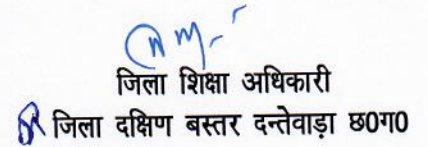 जिला शिक्षा अधिकारी
जिला दक्षिण बस्तर दन्तेवाड़ा छ0ग0